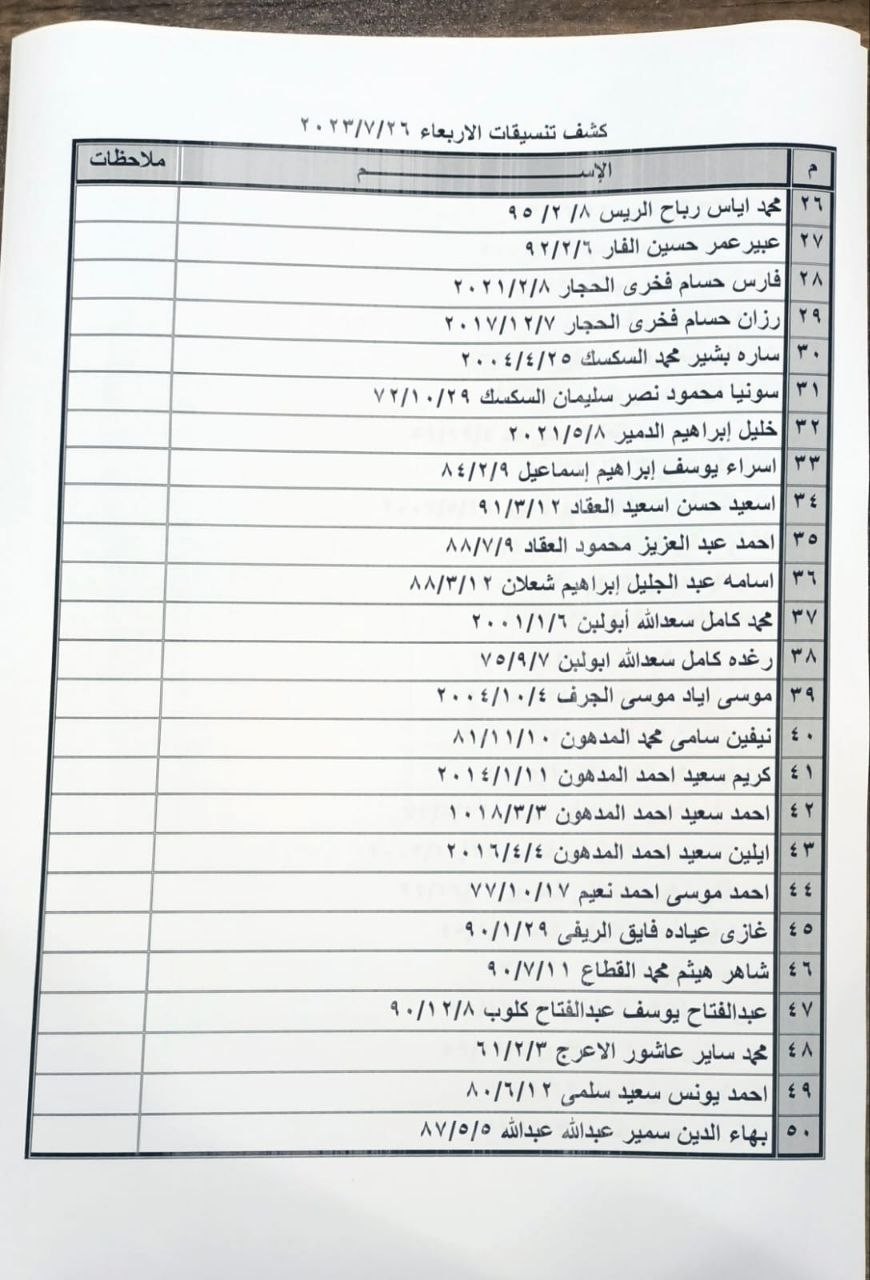 كشف تنسيقات الاربعاء ٢٠٢٣/٧/٢٦
م الإســـــــــم ملاحظات
٢٦ محمد اياس رباح الريس ٩٥/٢/٨
٢٧ عبير عمر حسين الفار ٩٢/٢/٦
٢٨ فارس حسام فخرى الحجار ٢٠٢١/٢/٨
٢٩ رزان حسام فخرى الحجار ٢٠١٧/١٢/٧
٣٠ ساره بشير محمد السكسك ٢٠٠٤/٤/٢٥
٣١ سونيا محمود نصر سليمان السكسك ٧٢/١٠/٢٩
٣٢ خليل إبراهيم الدمير ٢٠٢١/٥/٨
٣٣ اسراء يوسف إبراهيم إسماعيل ٨٤/٢/٩
٣٤ اسعيد حسن اسعيد العقاد ٩١/٣/١٢
٣٥ احمد عبد العزيز محمود العقاد ٨٨/٧/٩
٣٦ اسامه عبد الجليل إبراهيم شعلان ٨٨/٣/١٢
٣٧ محمد كامل سعدالله أبولبن ٢٠٠١/١/٦
٣٨ رغده كامل سعدالله ابولبن ٧٥/٩/٧
٣٩ موسى اياد موسى الجرف ٢٠٠٤/١٠/٤
٤٠ نيفين سامى محمد المدهون ٨١/١١/١٠
٤١ كريم سعيد احمد المدهون ٢٠١٤/١/١١
٤٢ احمد سعيد احمد المدهون ١٠١٨/٣/٣
٤٣ ايلين سعيد احمد المدهون ٢٠١٦/٤/٤
٤٤ احمد موسى احمد نعيم ٧٧/١٠/١٧
٤٥ غازى عياده فايق الريفى ٩٠/١/٢٩
٤٦ شاهر هيثم محمد القطاع ٩٠/٧/١١
٤٧ عبدالفتاح يوسف عبدالفتاح كلوب ٩٠/١٢/٨
٤٨ محمد ساير عاشور الاعرج ٦١/٢/٣
٤٩ احمد يونس سعيد سلمى ٨٠/٦/١٢
٥٠ بهاء الدين سمير عبدالله عبدالله ٨٧/٥/٥